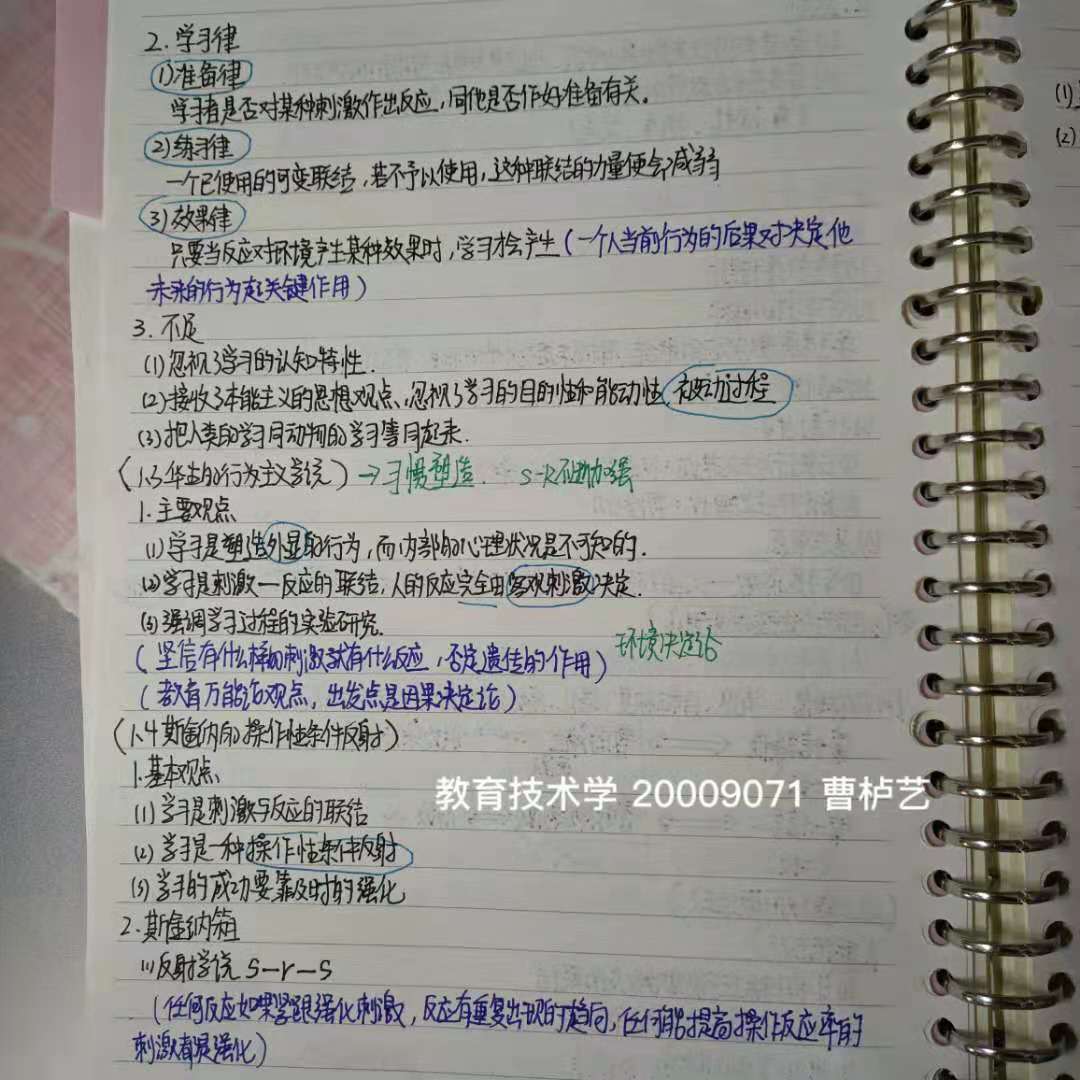 2. 学习律
1)准备律
学习者是否对某种刺激作出反应,同他是否作好准备有关。
2)练习律
一个已使用的可变联结,若不予以使用,这种联结的力量便会减弱
3)效果律
只要当反应对环境产生某种效果时,学习才会产生(一个人当前行为的后果对决定他
未来的行为起关键作用)
3. 不足
(1)忽视了学习的认知特性.
(2)接收了本能主义的思想观点,忽视了学习的目的性和能动性,被动过程
(3)把人类的学习同动物的学习等同起来.
(1.3华生的行为主义系统)→习惯塑造. S-R不断加强
1.主要观点
(1)学习是塑造外显的行为,而内部的心理状况是不可知的.
(2)学习是刺激—反应的联结,人的反应完全由客观刺激决定.
(3)强调学习过程的实验研究.
环境决定论
(坚信有什么样的刺激就有什么反应,否定遗传的作用)
(教育万能论观点,出发点是因果决定论)
(1.4斯金纳的操作性条件反射)
1.基本观点
教育技术学 20009071 曹栌艺
(1)学习是刺激与反应的联结
(2)学习是一种操作性条件反射
(3)学习的成功要靠及时的强化
2.斯金纳箱
(1)反射学说 S—r—S
(任何反应如果紧跟强化刺激,反应有重复出现的趋向,任何能提高操作反应率的
刺激都是强化)
(1)
(2)